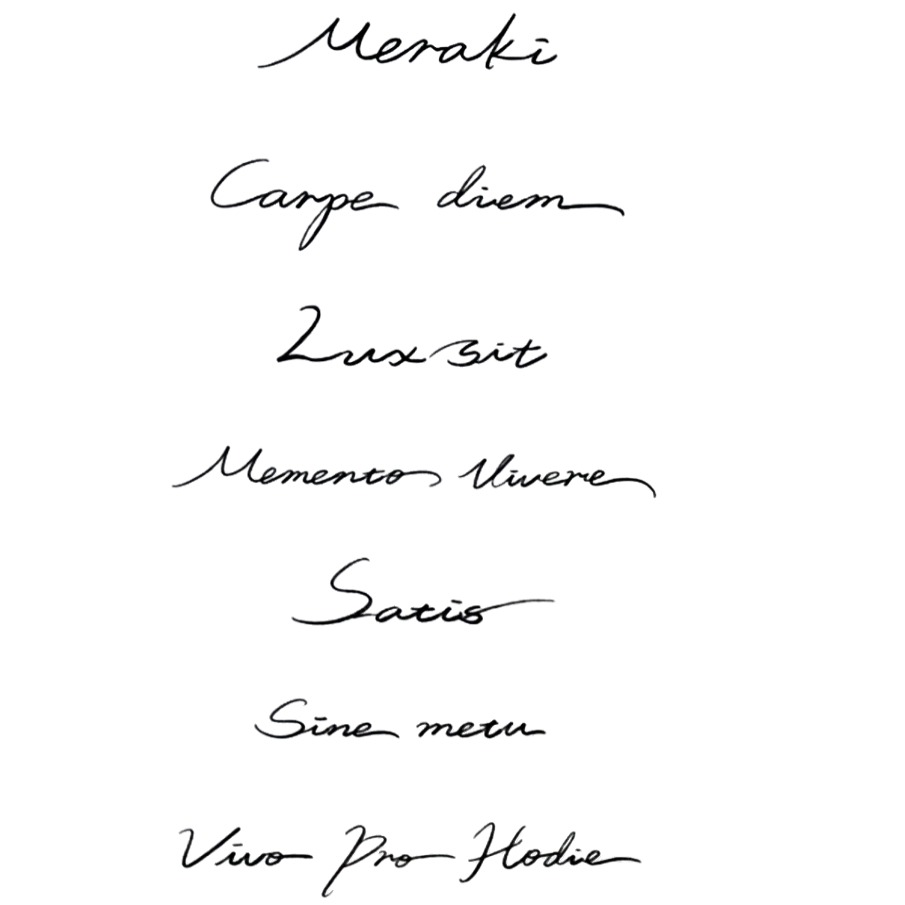 Meraki
Carpe diem
Lux sit
Memento Vivere
Satis
Sine metu
Vivo Pro Hodie